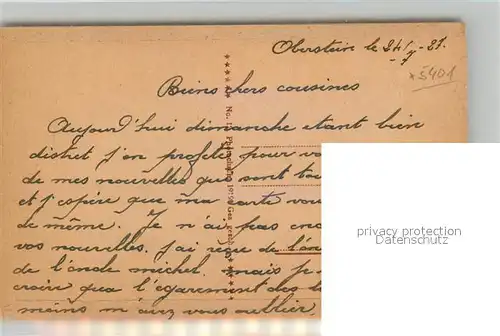 Oberstein le 24/5-21.
*5401
Biens chers cousines
Aujourd'hui dimanche etant bien
distret j'en profite pour vo
de mes nouvelles que sont tou
et j'espère que ma carte vou
de même. Je n'ai pas enco
vos nouvelles. j'ai reçue de l'on
de l'oncle michel. mais je
croire que l'égarement des l
moins m'avez vous oublier
privacy protection
www.oldthing.de